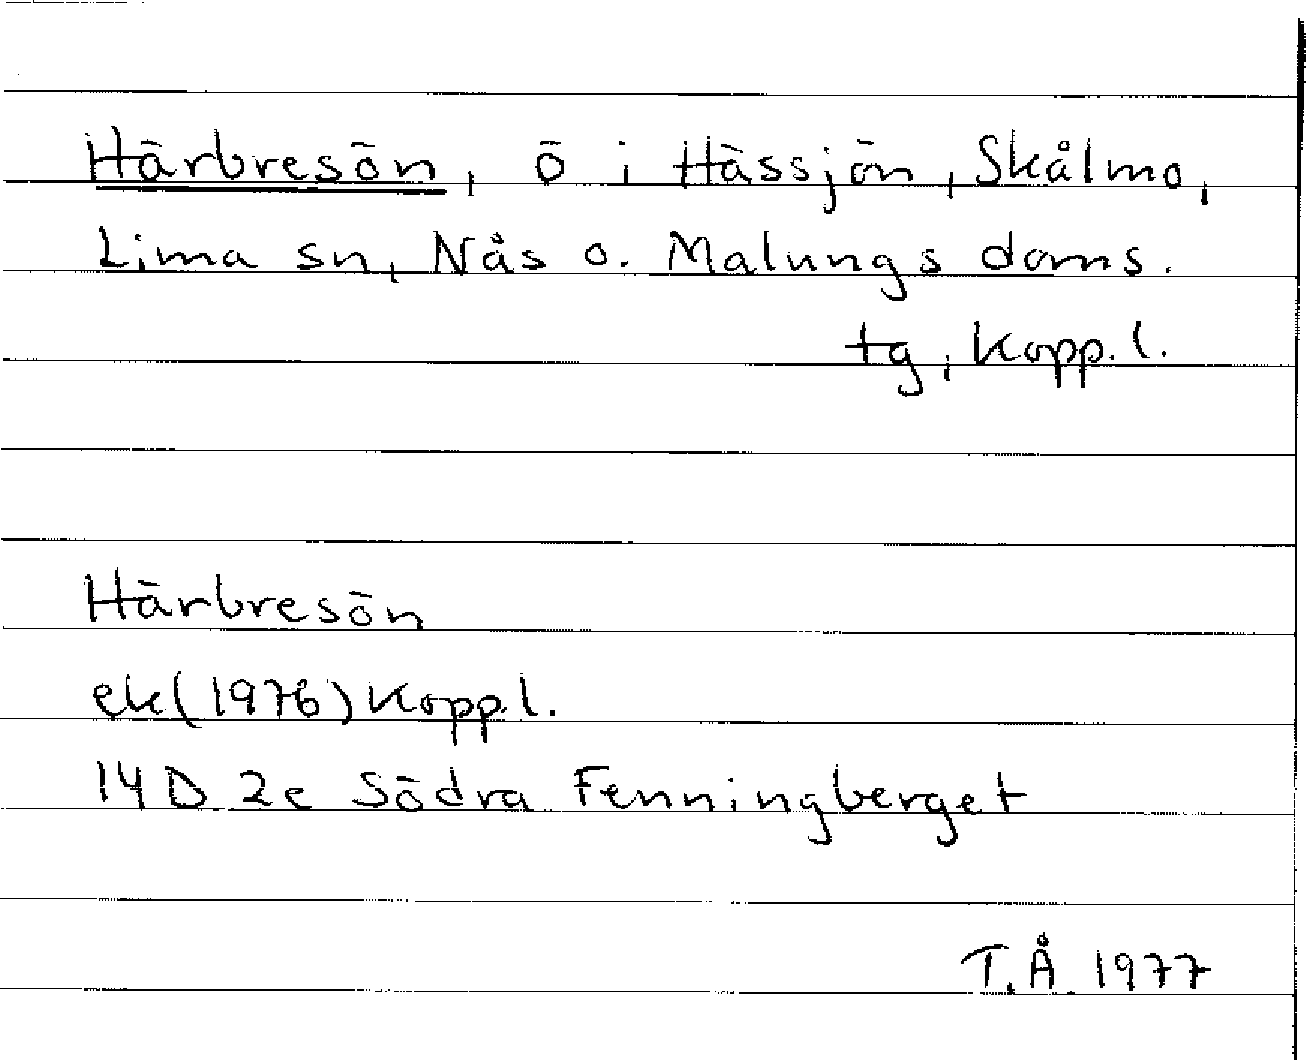 Härbresön, ö i Hässjön, Skålmo,
Lima sn, Nås o. Malungs doms.
tg, Kopp.l.
Härbresön
ek(1976)Kopp.l.
14D 2e Södra Fenningberget
T.Å. 1977